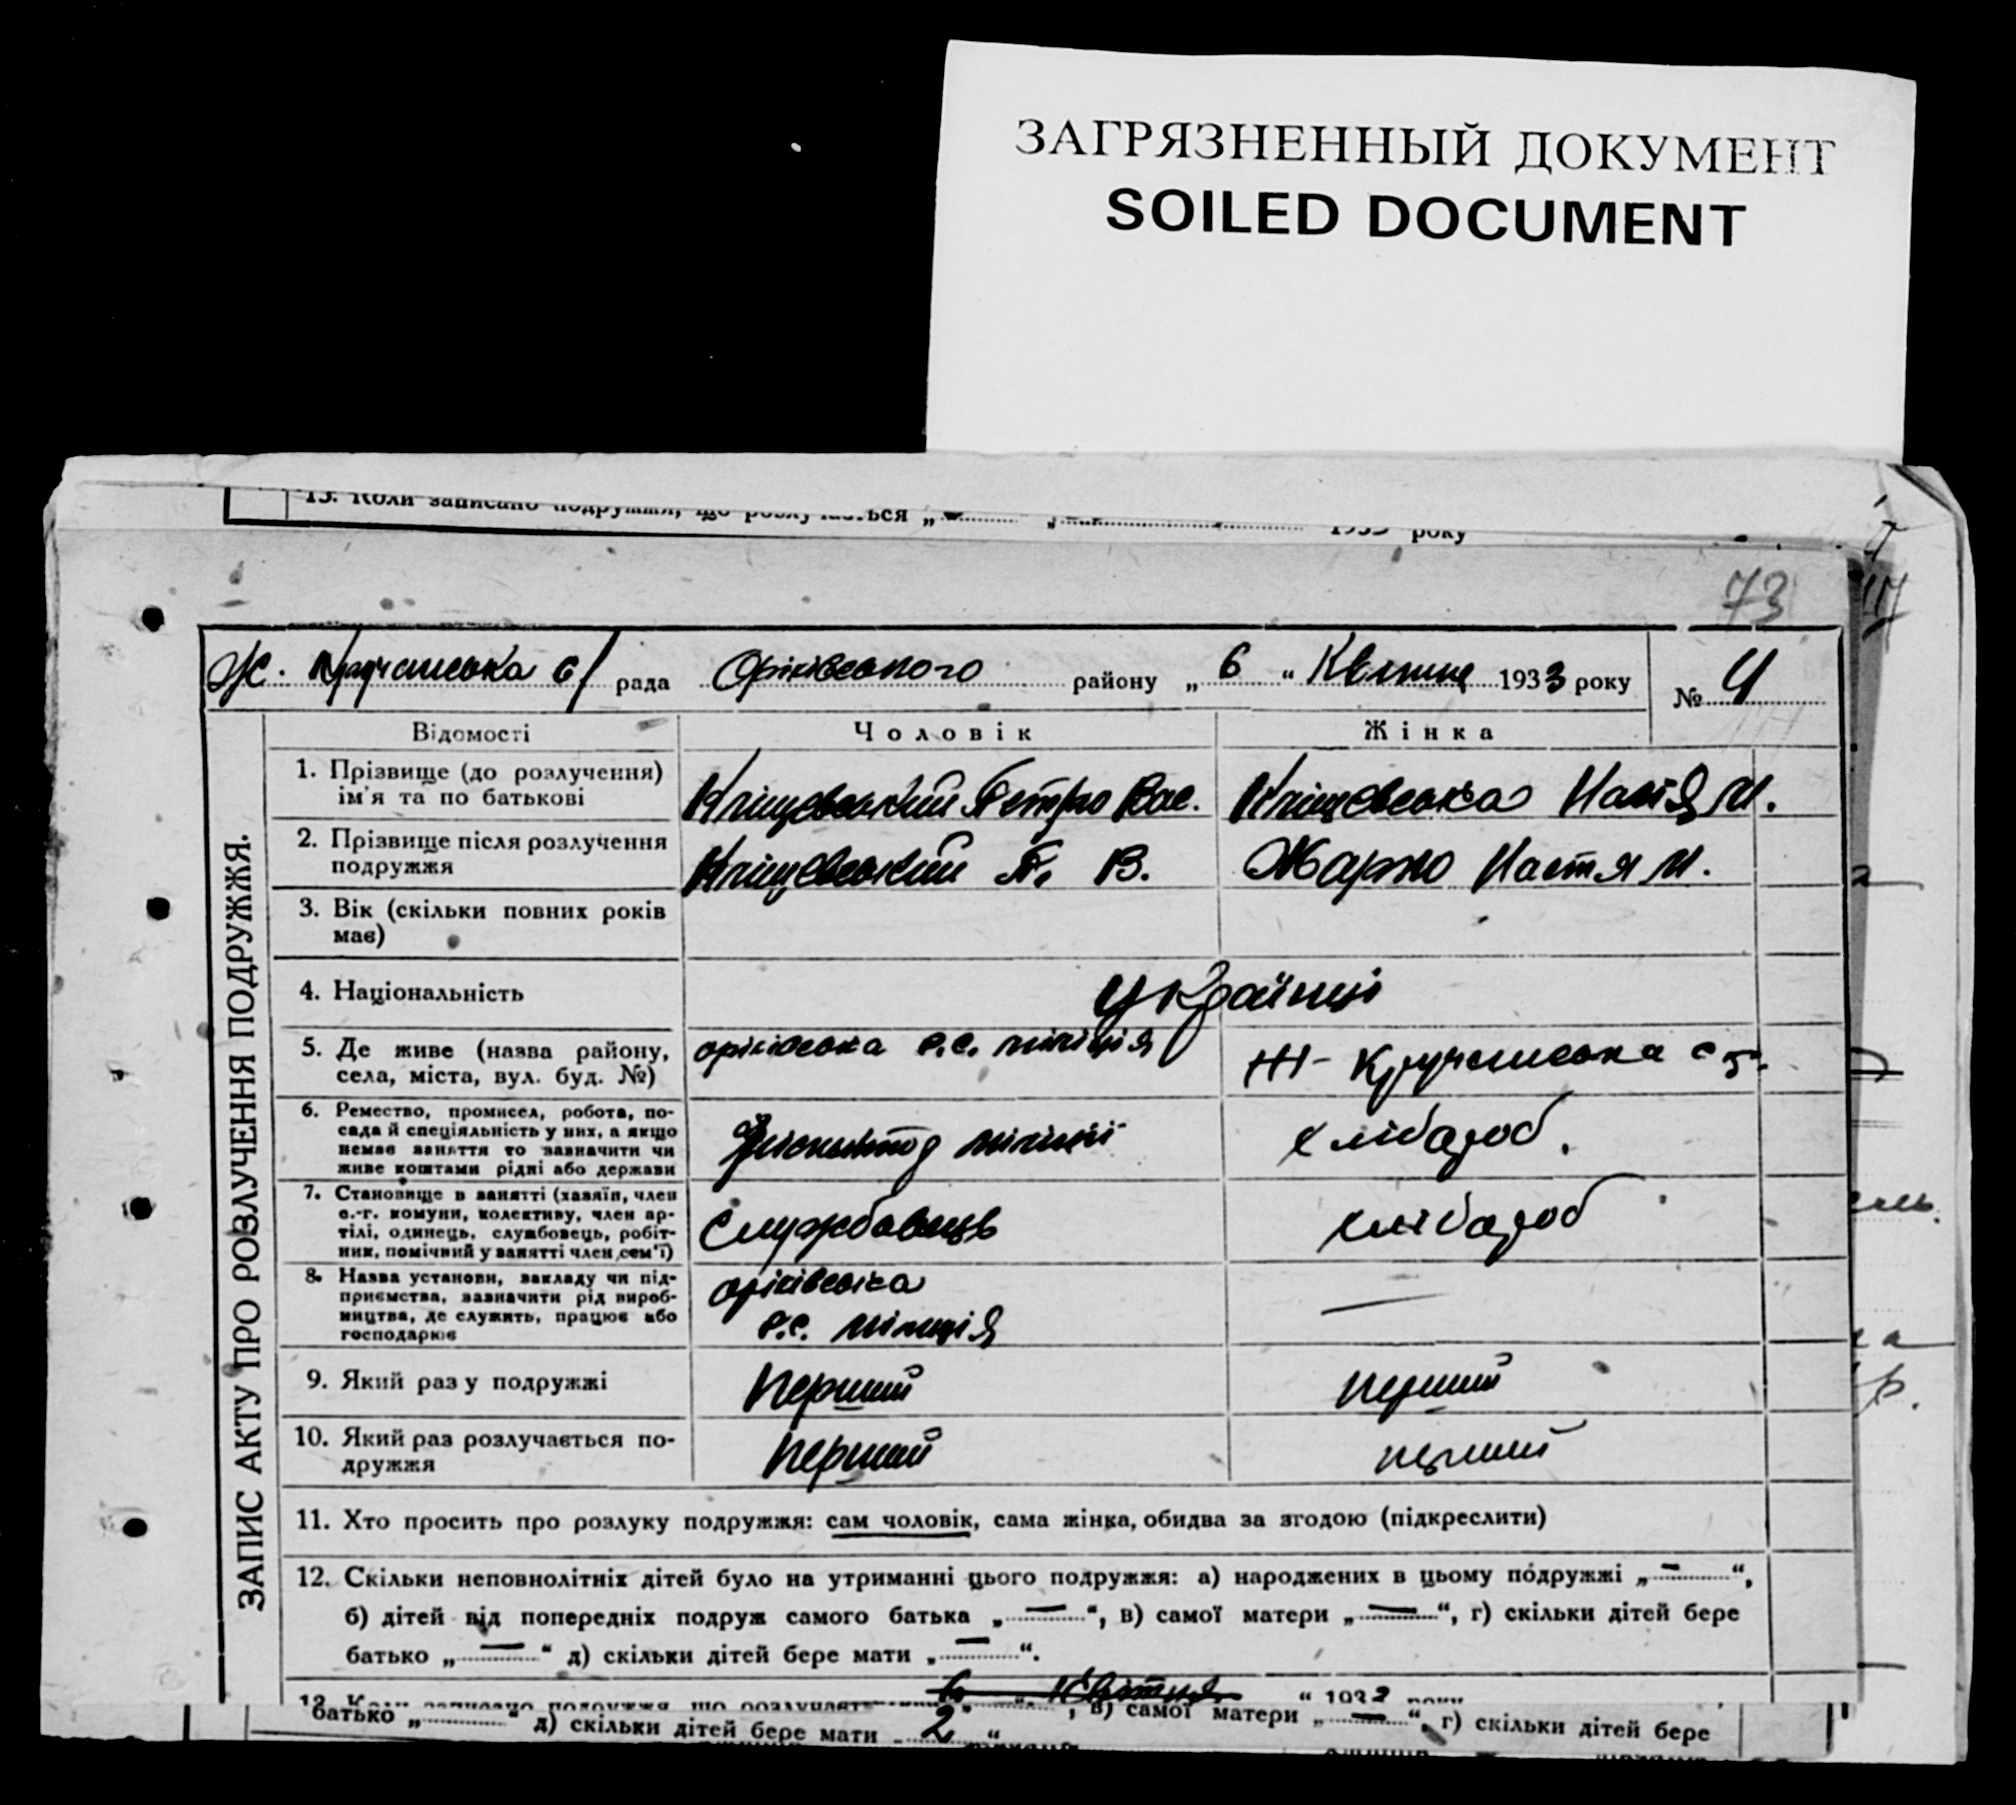 ЗАГРЯЗНЕННЫЙ ДОКУМЕНТ
SOILED DOCUMENT
13. Коли записано подружжя, що розлучається „ „ 1933 року
73
Ж. с/ рада Оріхівського району „ 6 “ Квітня 1933 року № 4
ЗАПИС АКТУ ПРО РОЗЛУЧЕННЯ ПОДРУЖЖЯ.
Відомості Чоловік Жінка
1. Прізвище (до розлучення) Кліщевський Петро Вас. Кліщевська Настя И.
ім'я та по батькові
2. Прізвище після розлучення Кліщевський П. В. Жарко Настя И.
подружжя
3. Вік (скільки повних років
має)
4. Національність Українці
5. Де живе (назва району, оріхівська р.с. міліція Ж-
села, міста, вул. буд. №)
6. Ремество, промисел, робота, по-
сада й спеціяльність у них, а якщо міліції хлібороб.
немає заняття то зазначити чи
живе коштами рідні або держави
7. Становище в занятті (хазяїн, член
с.-г. комуни, колективу, член ар- Службовець хлібороб
тілі, одинець, службовець, робіт-
ник, помічний у занятті член сем'ї)
8. Назва установи, закладу чи під- оріхівська —
приємства, зазначити рід вироб- р.с. міліція
ництва, де служить, працює або
господарює
9. Який раз у подружжі перший перший
10. Який раз розлучається по- перший перший
дружжя
11. Хто просить про розлуку подружжя: сам чоловік, сама жінка, обидва за згодою (підкреслити)
12. Скільки неповнолітніх дітей було на утриманні цього подружжя: а) народжених в цьому подружжі „ — “,
б) дітей від попередніх подруж самого батька „ — “, в) самої матери „ — “, г) скільки дітей бере
батько „ — “ д) скільки дітей бере мати „ — “.
13. Коли записано подружжя, що розлучається 6 Квітня “ 1933 року
батько „ “ д) скільки дітей бере мати „ 2 “ , в) самої матери „ — “, г) скільки дітей бере